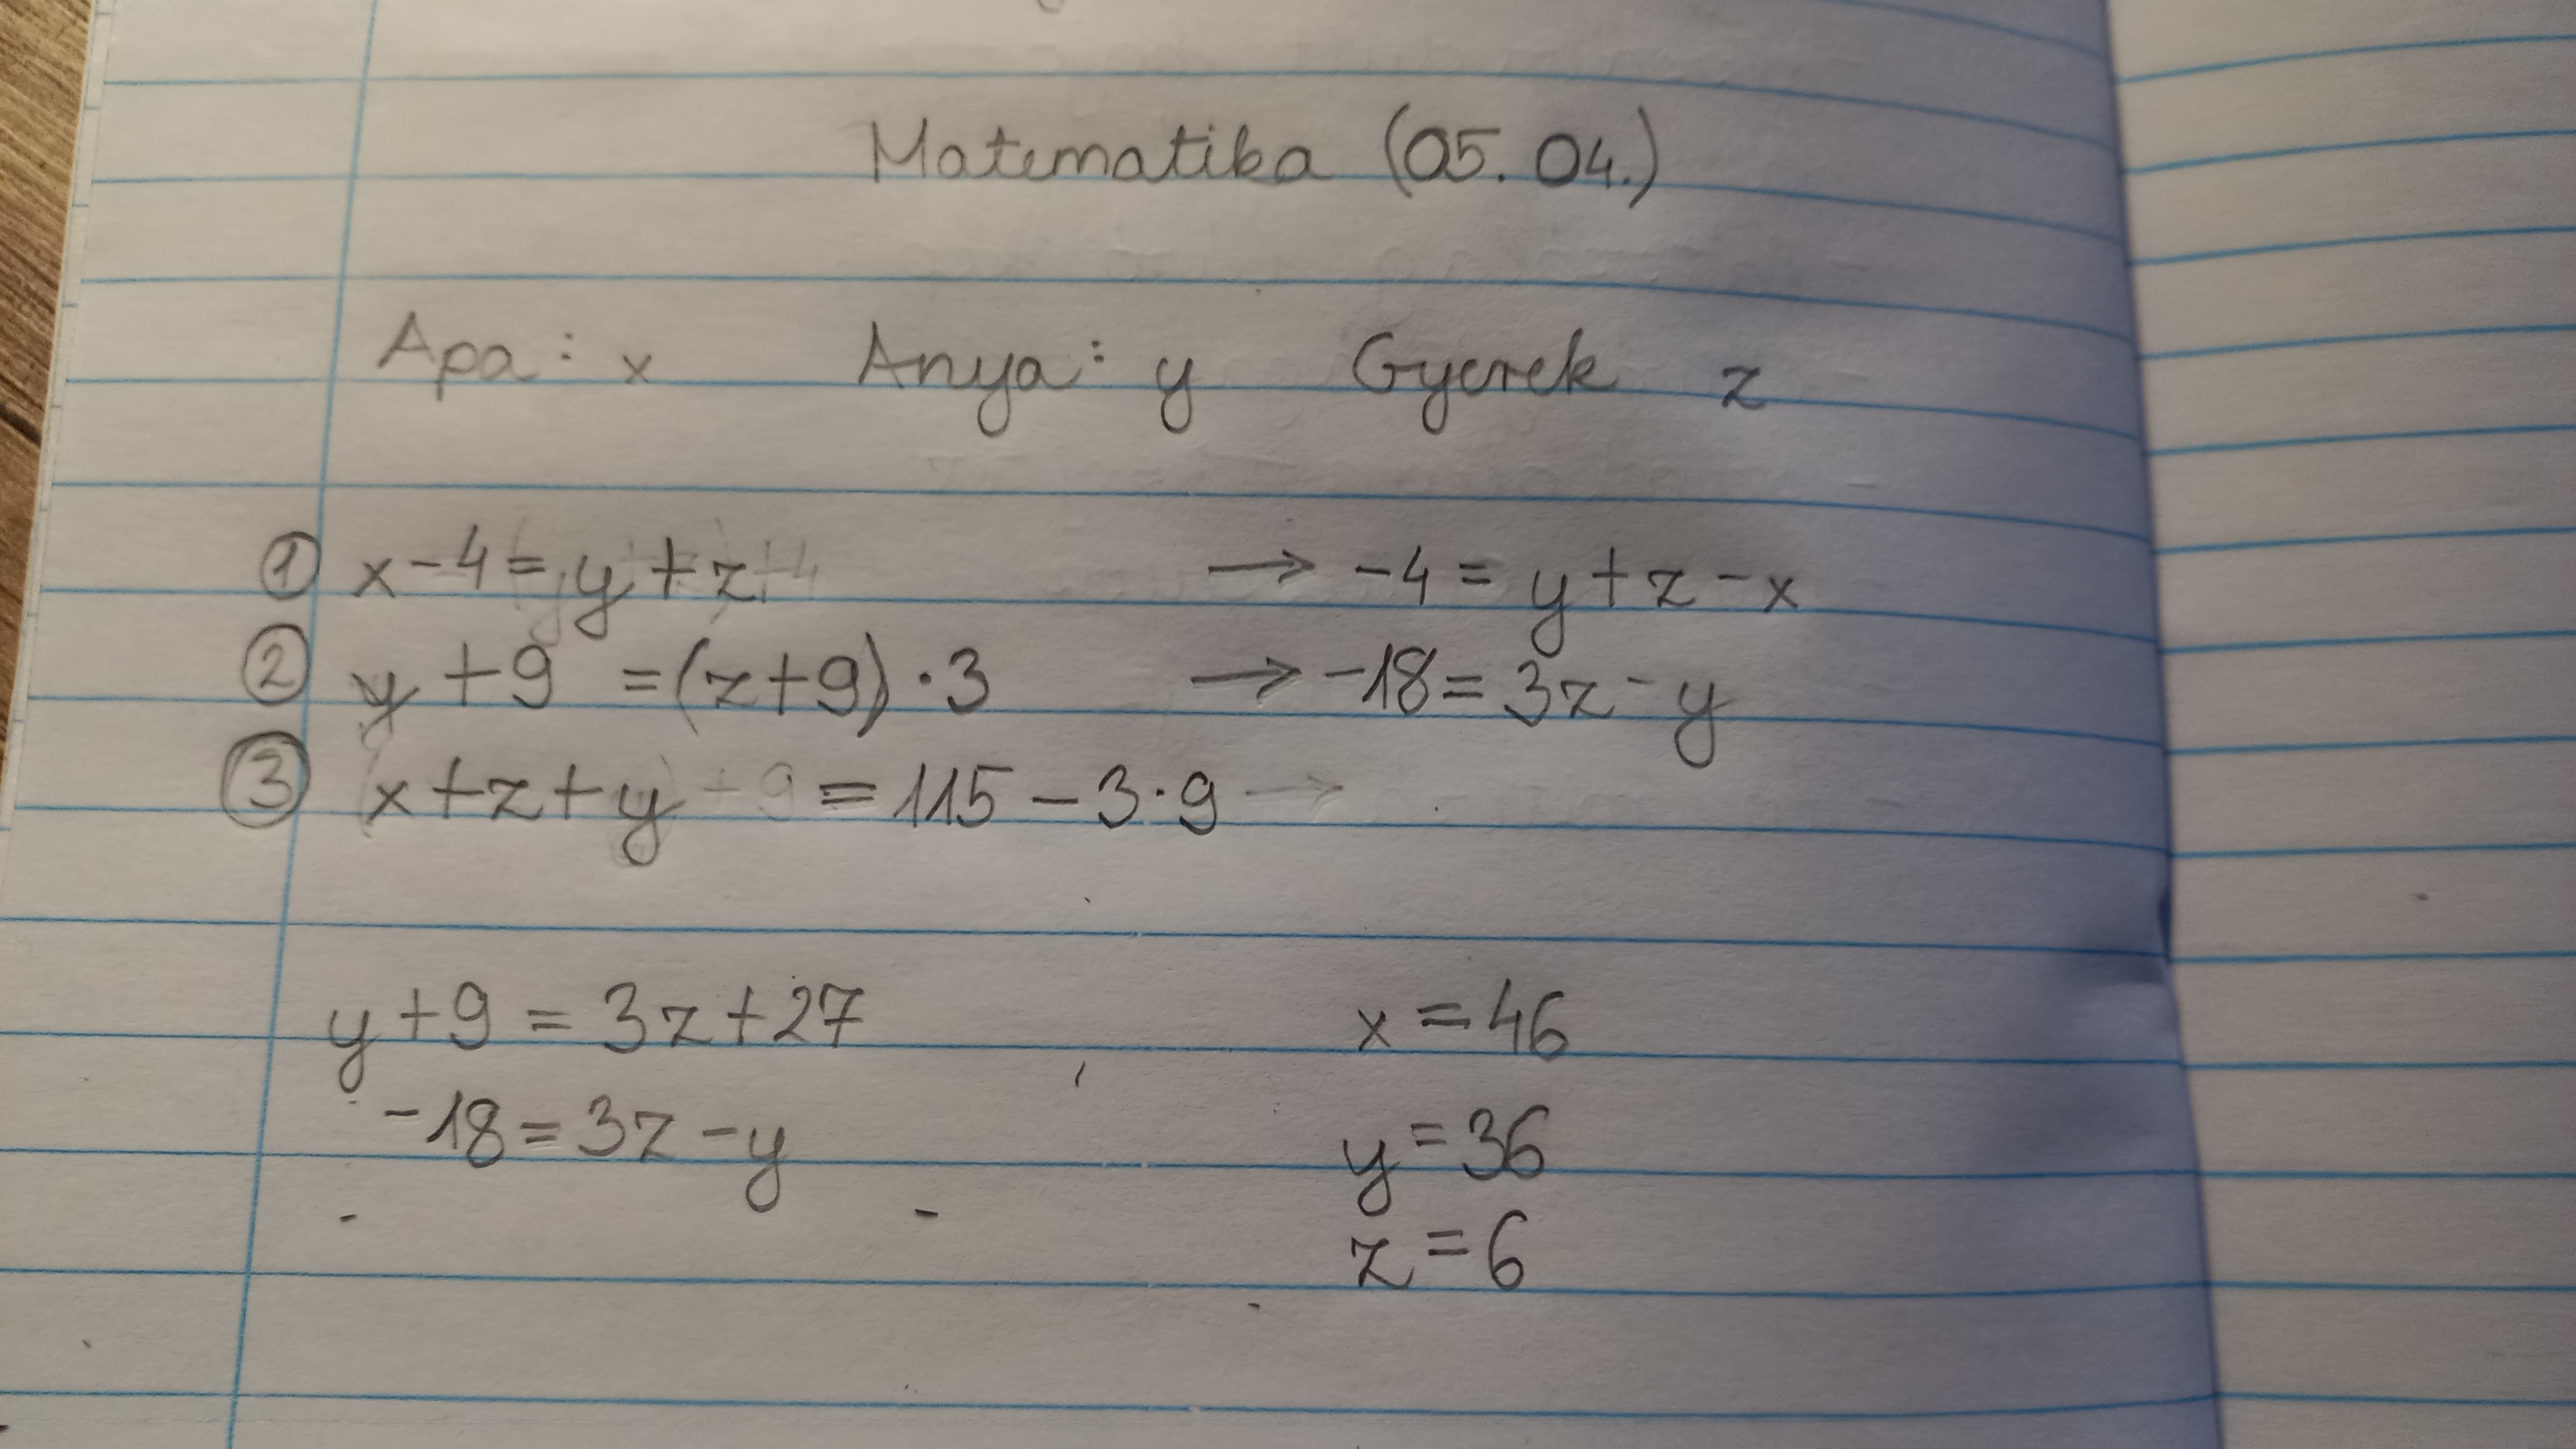 Matematika (05. 04.)
Apa: x Anya: y Gyerek z
① x-4=y+z → -4=y+z-x
② y+9=(z+9)·3 → -18=3z-y
③ x+z+y=115-3·9 →
y+9=3z+27 x=46
-18=3z-y y=36
z=6